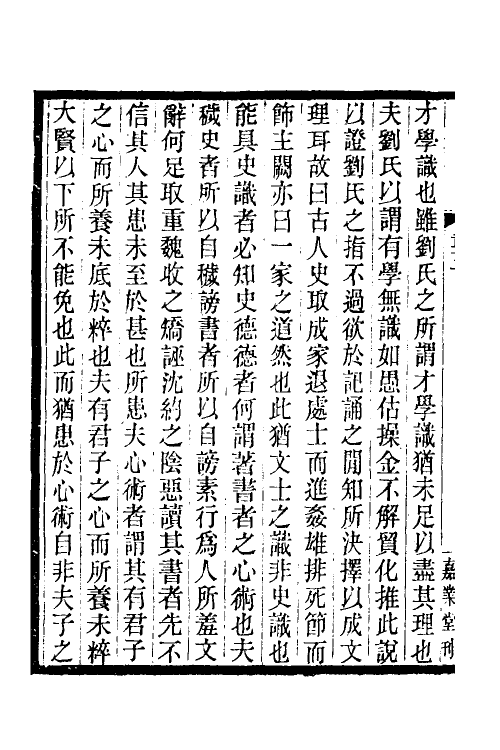 才學識也雖劉氏之所謂才學識猶未足以盡其理也
夫劉氏以謂有學無識如愚估操金不解貿化推此說
以證劉氏之指不過欲於記誦之間知所決擇以成文
理耳故曰古人史取成家退處士而進姦雄排死節而
飾主闕亦曰一家之道然也此猶文士之識非史識也
能具史識者必知史德德者何謂著書者之心術也夫
穢史者所以自穢謗書者所以自謗素行爲人所羞文
辭何足取重魏收之矯誣沈約之陰惡讀其書者先不
信其人其患未至於甚也所患夫心術者謂其有君子
之心而所養未底於粹也夫有君子之心而所養未粹
大賢以下所不能免也此而猶患於心術自非夫子之
嘉業堂刊